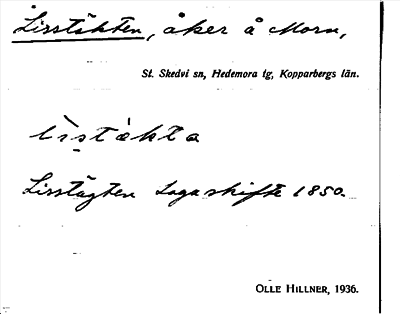 Lisstäkten, åker å Morn,
St. Skedvi sn, Hedemora tg, Kopparbergs län.
lìstäkta
Lisstägten Lagaskifte 1850.
OLLE HILLNER, 1936.